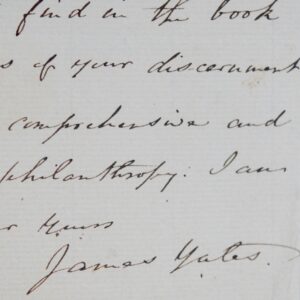 find in the book
s of your discernment
comprehensive and
philanthropy. I am
r yours
James Yates.